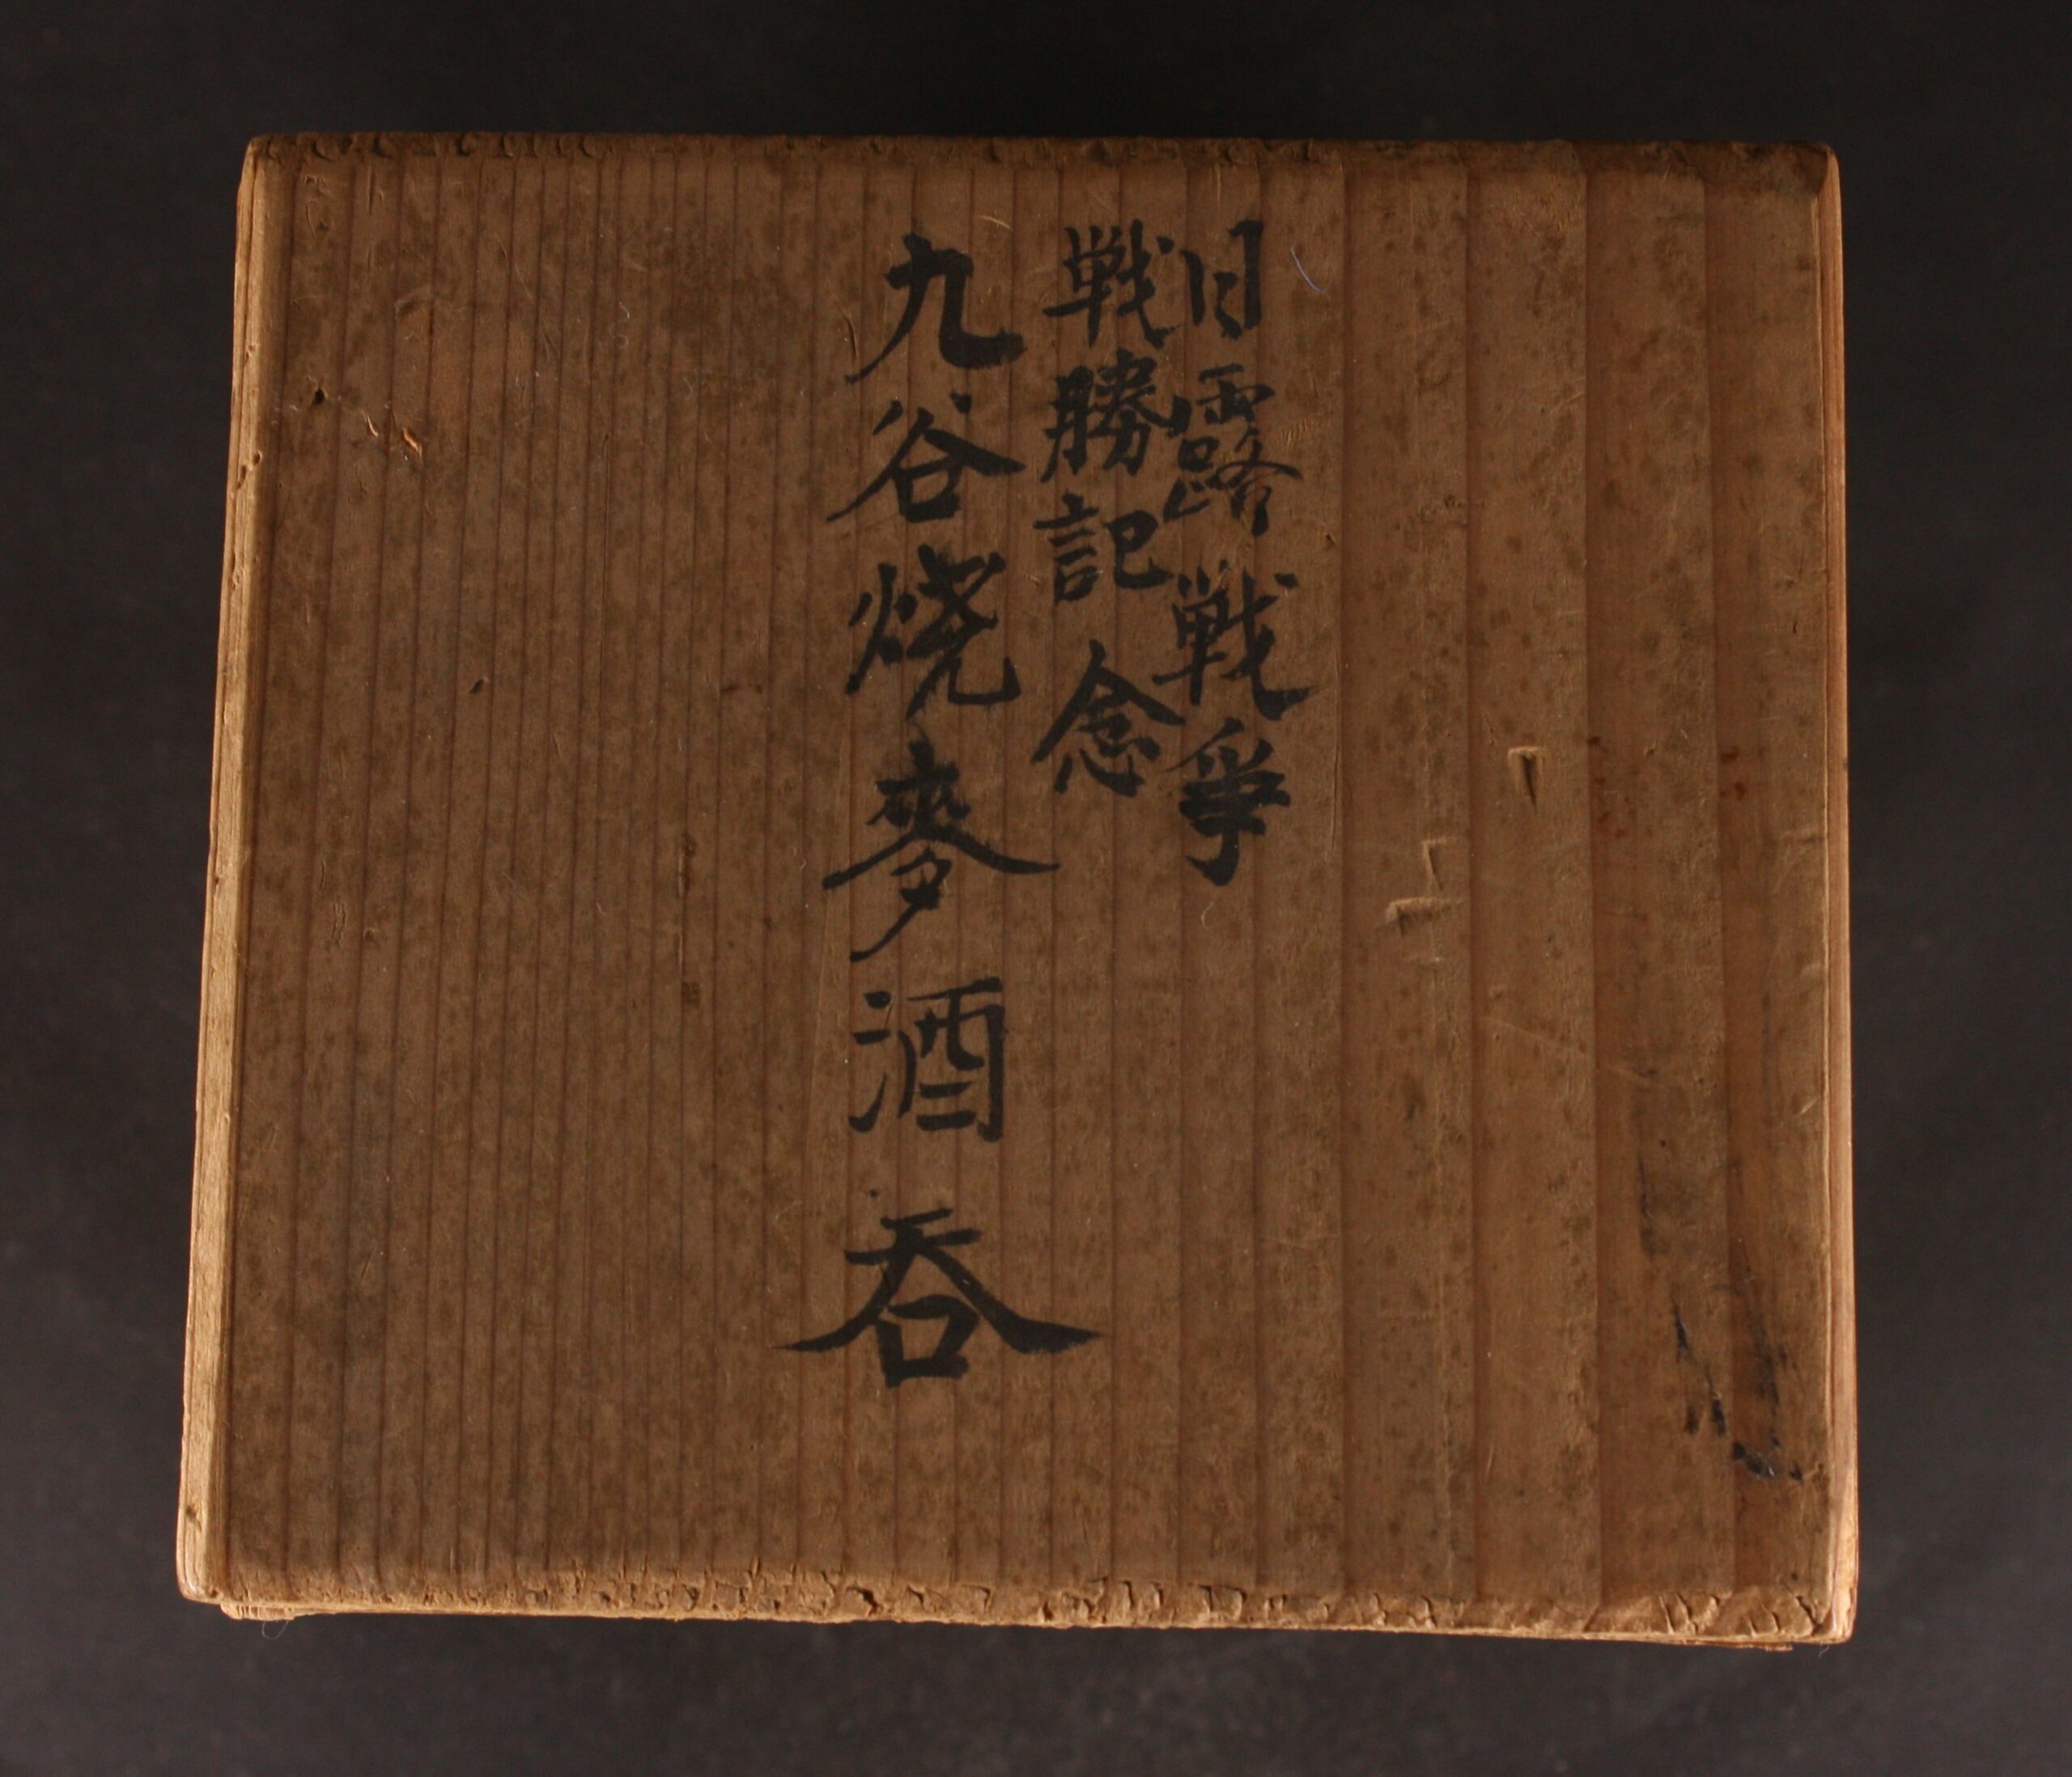 日露戦争
戦勝記念
九谷焼麥酒呑